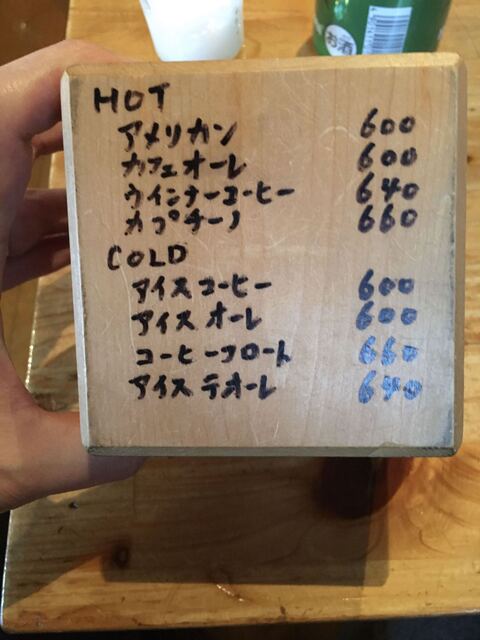 お酒
HOT
アメリカン 600
カフェオーレ 600
ウインナーコーヒー 640
カプチーノ 660
COLD
アイスコーヒー 600
アイスオーレ 600
コーヒーフロート 660
アイステオーレ 640